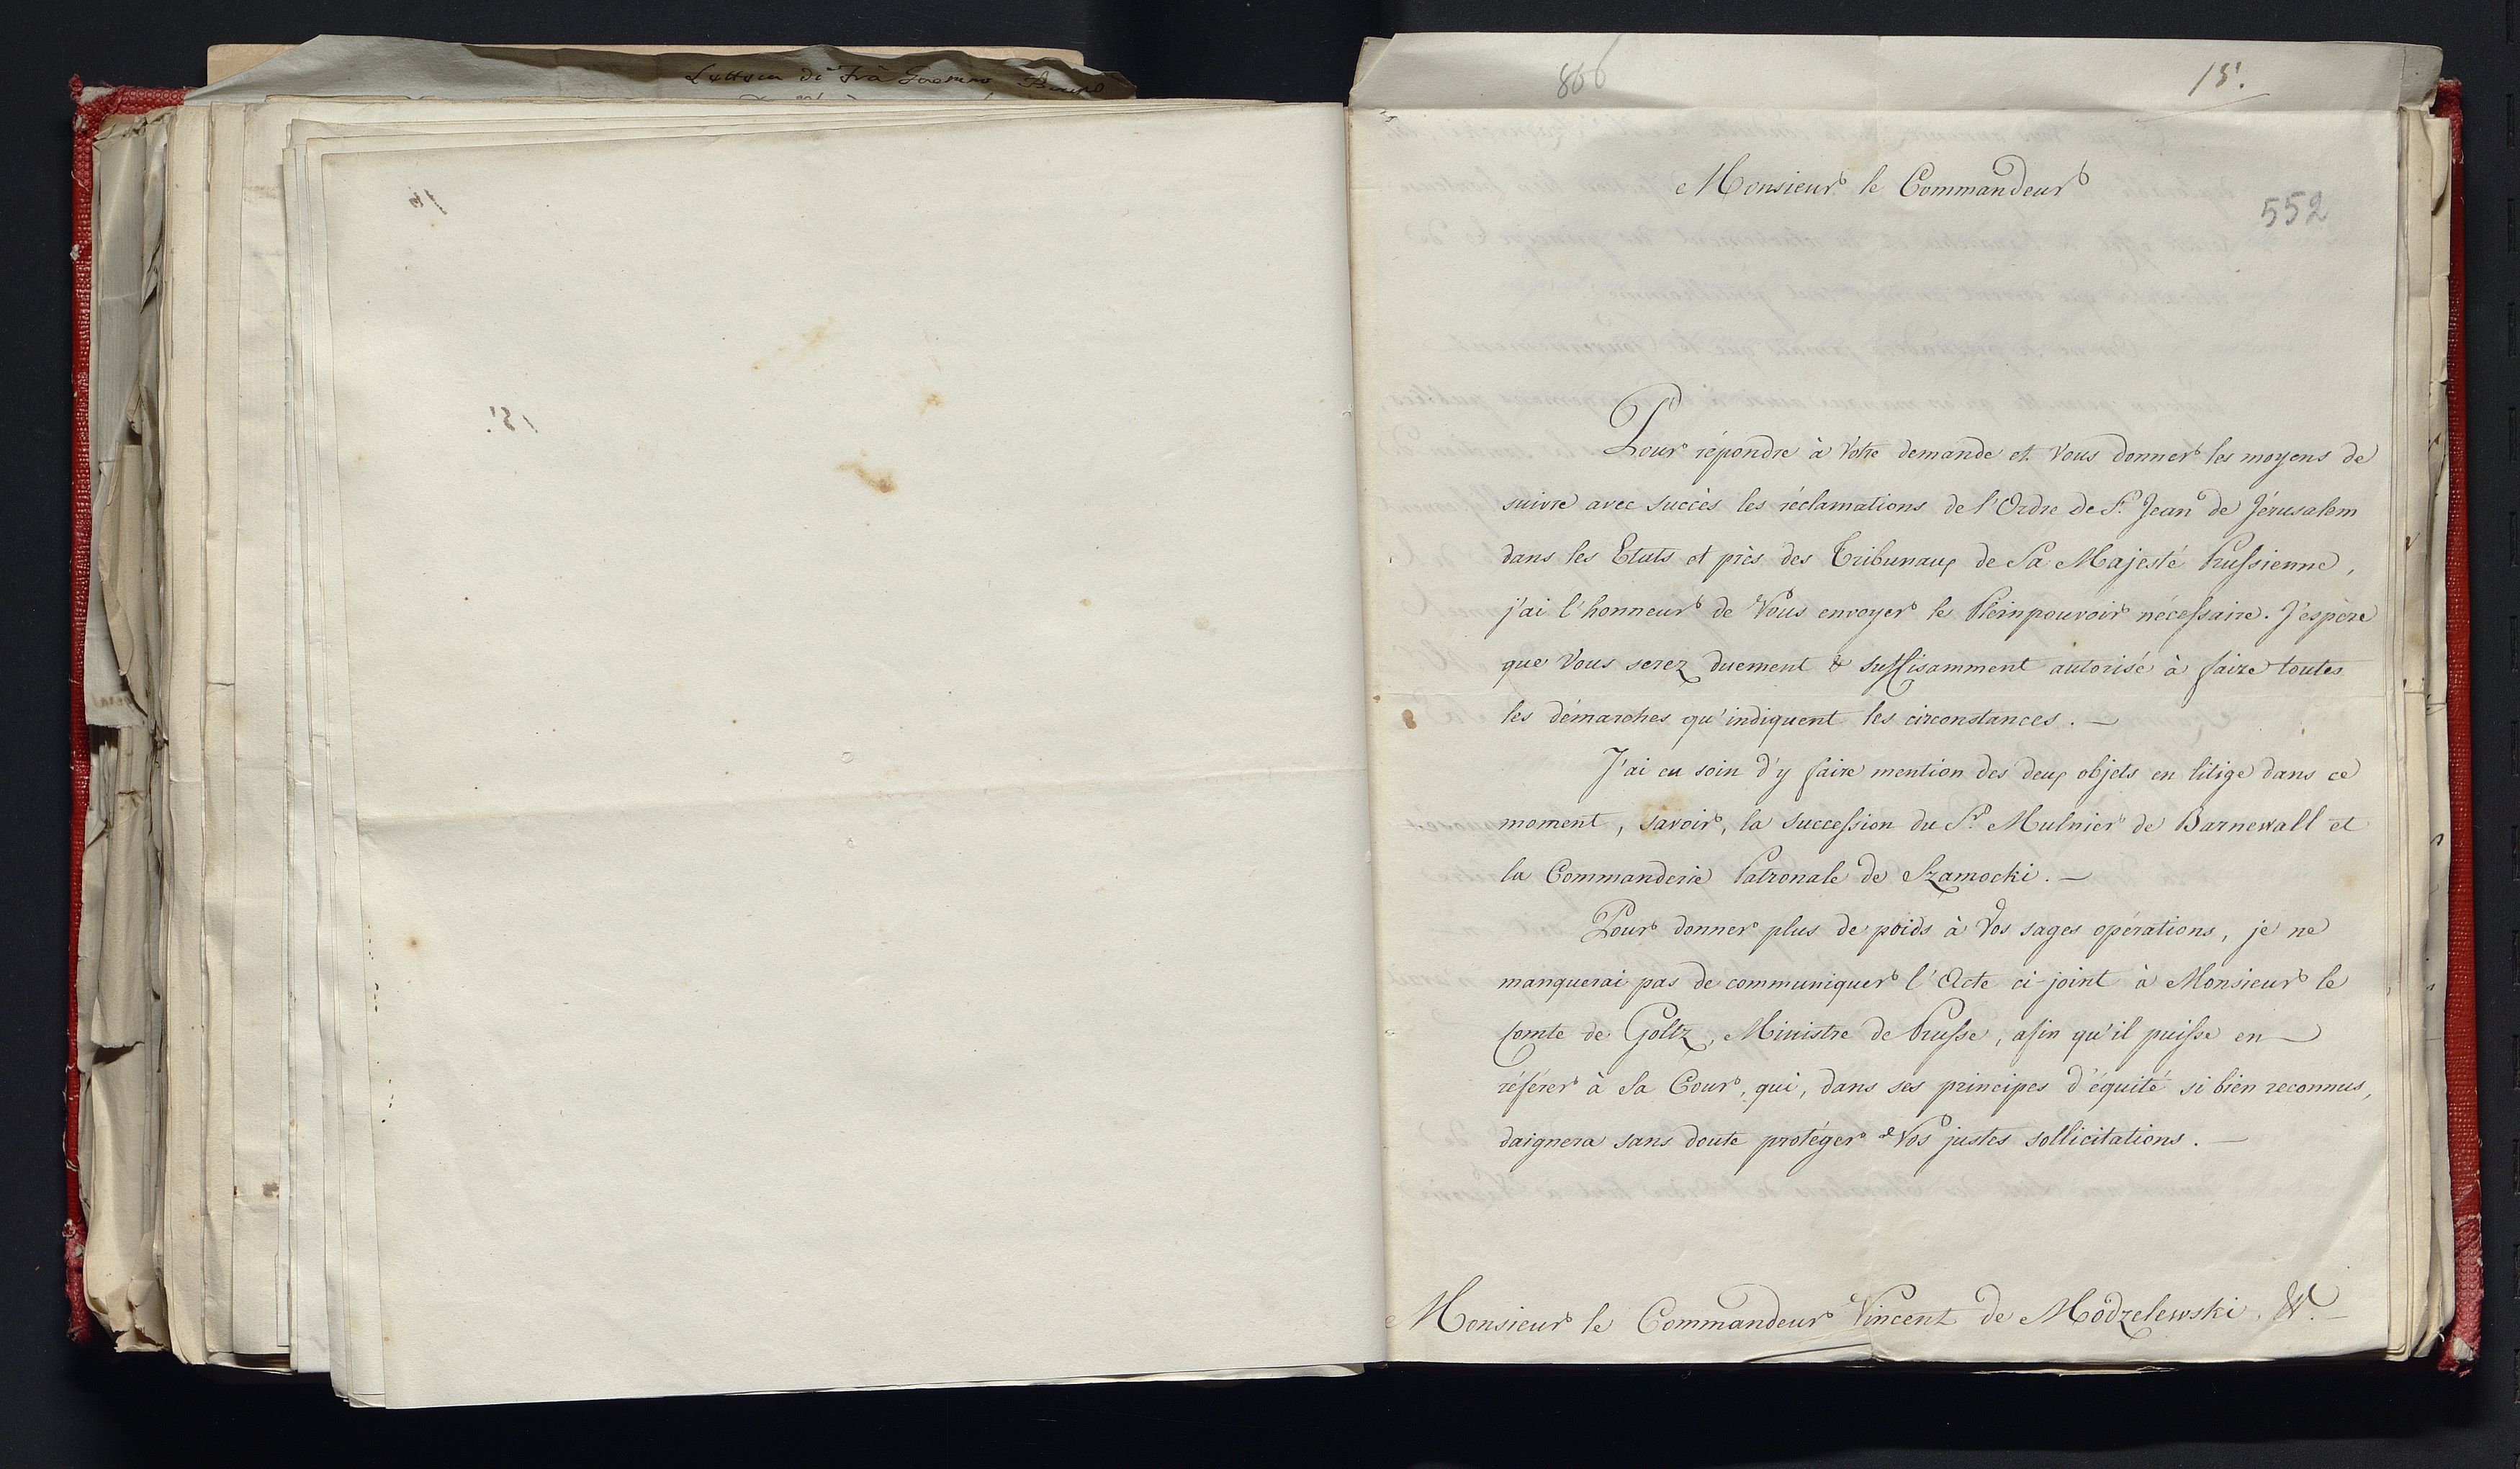 Lettera di Frà
806
15.
Monsieur le Commandeur
552
Pour répondre à Votre demande et Vous donner les moyens de
suivre avec succès les réclamations de l'Ordre de S. Jean de Jérusalem
dans les Etats et près des Tribunaux de Sa Majesté Prussienne,
j'ai l'honneur de Vous envoyer le Pleinpouvoir nécessaire. J'espère
que Vous serez duement & suffisamment autorisé à faire toutes
les démarches qu'indiquent les circonstances. —
J'ai eu soin d'y faire mention des deux objets en litige dans ce
moment, savoir, la succession du Sr. Mulnier de Barnewall et
la Commanderie Patronale de Szamocki. —
Pour donner plus de poids à Vos sages opérations, je ne
manquerai pas de communiquer l'Acte ci-joint à Monsieur le
Comte de Goltz, Ministre de Prusse, afin qu'il puisse en
référer à Sa Cour, qui, dans ses principes d'équité si bien reconnus,
daignera sans doute protéger Vos justes sollicitations. —
Monsieur le Commandeur Vincent de Modzelewski. W. —